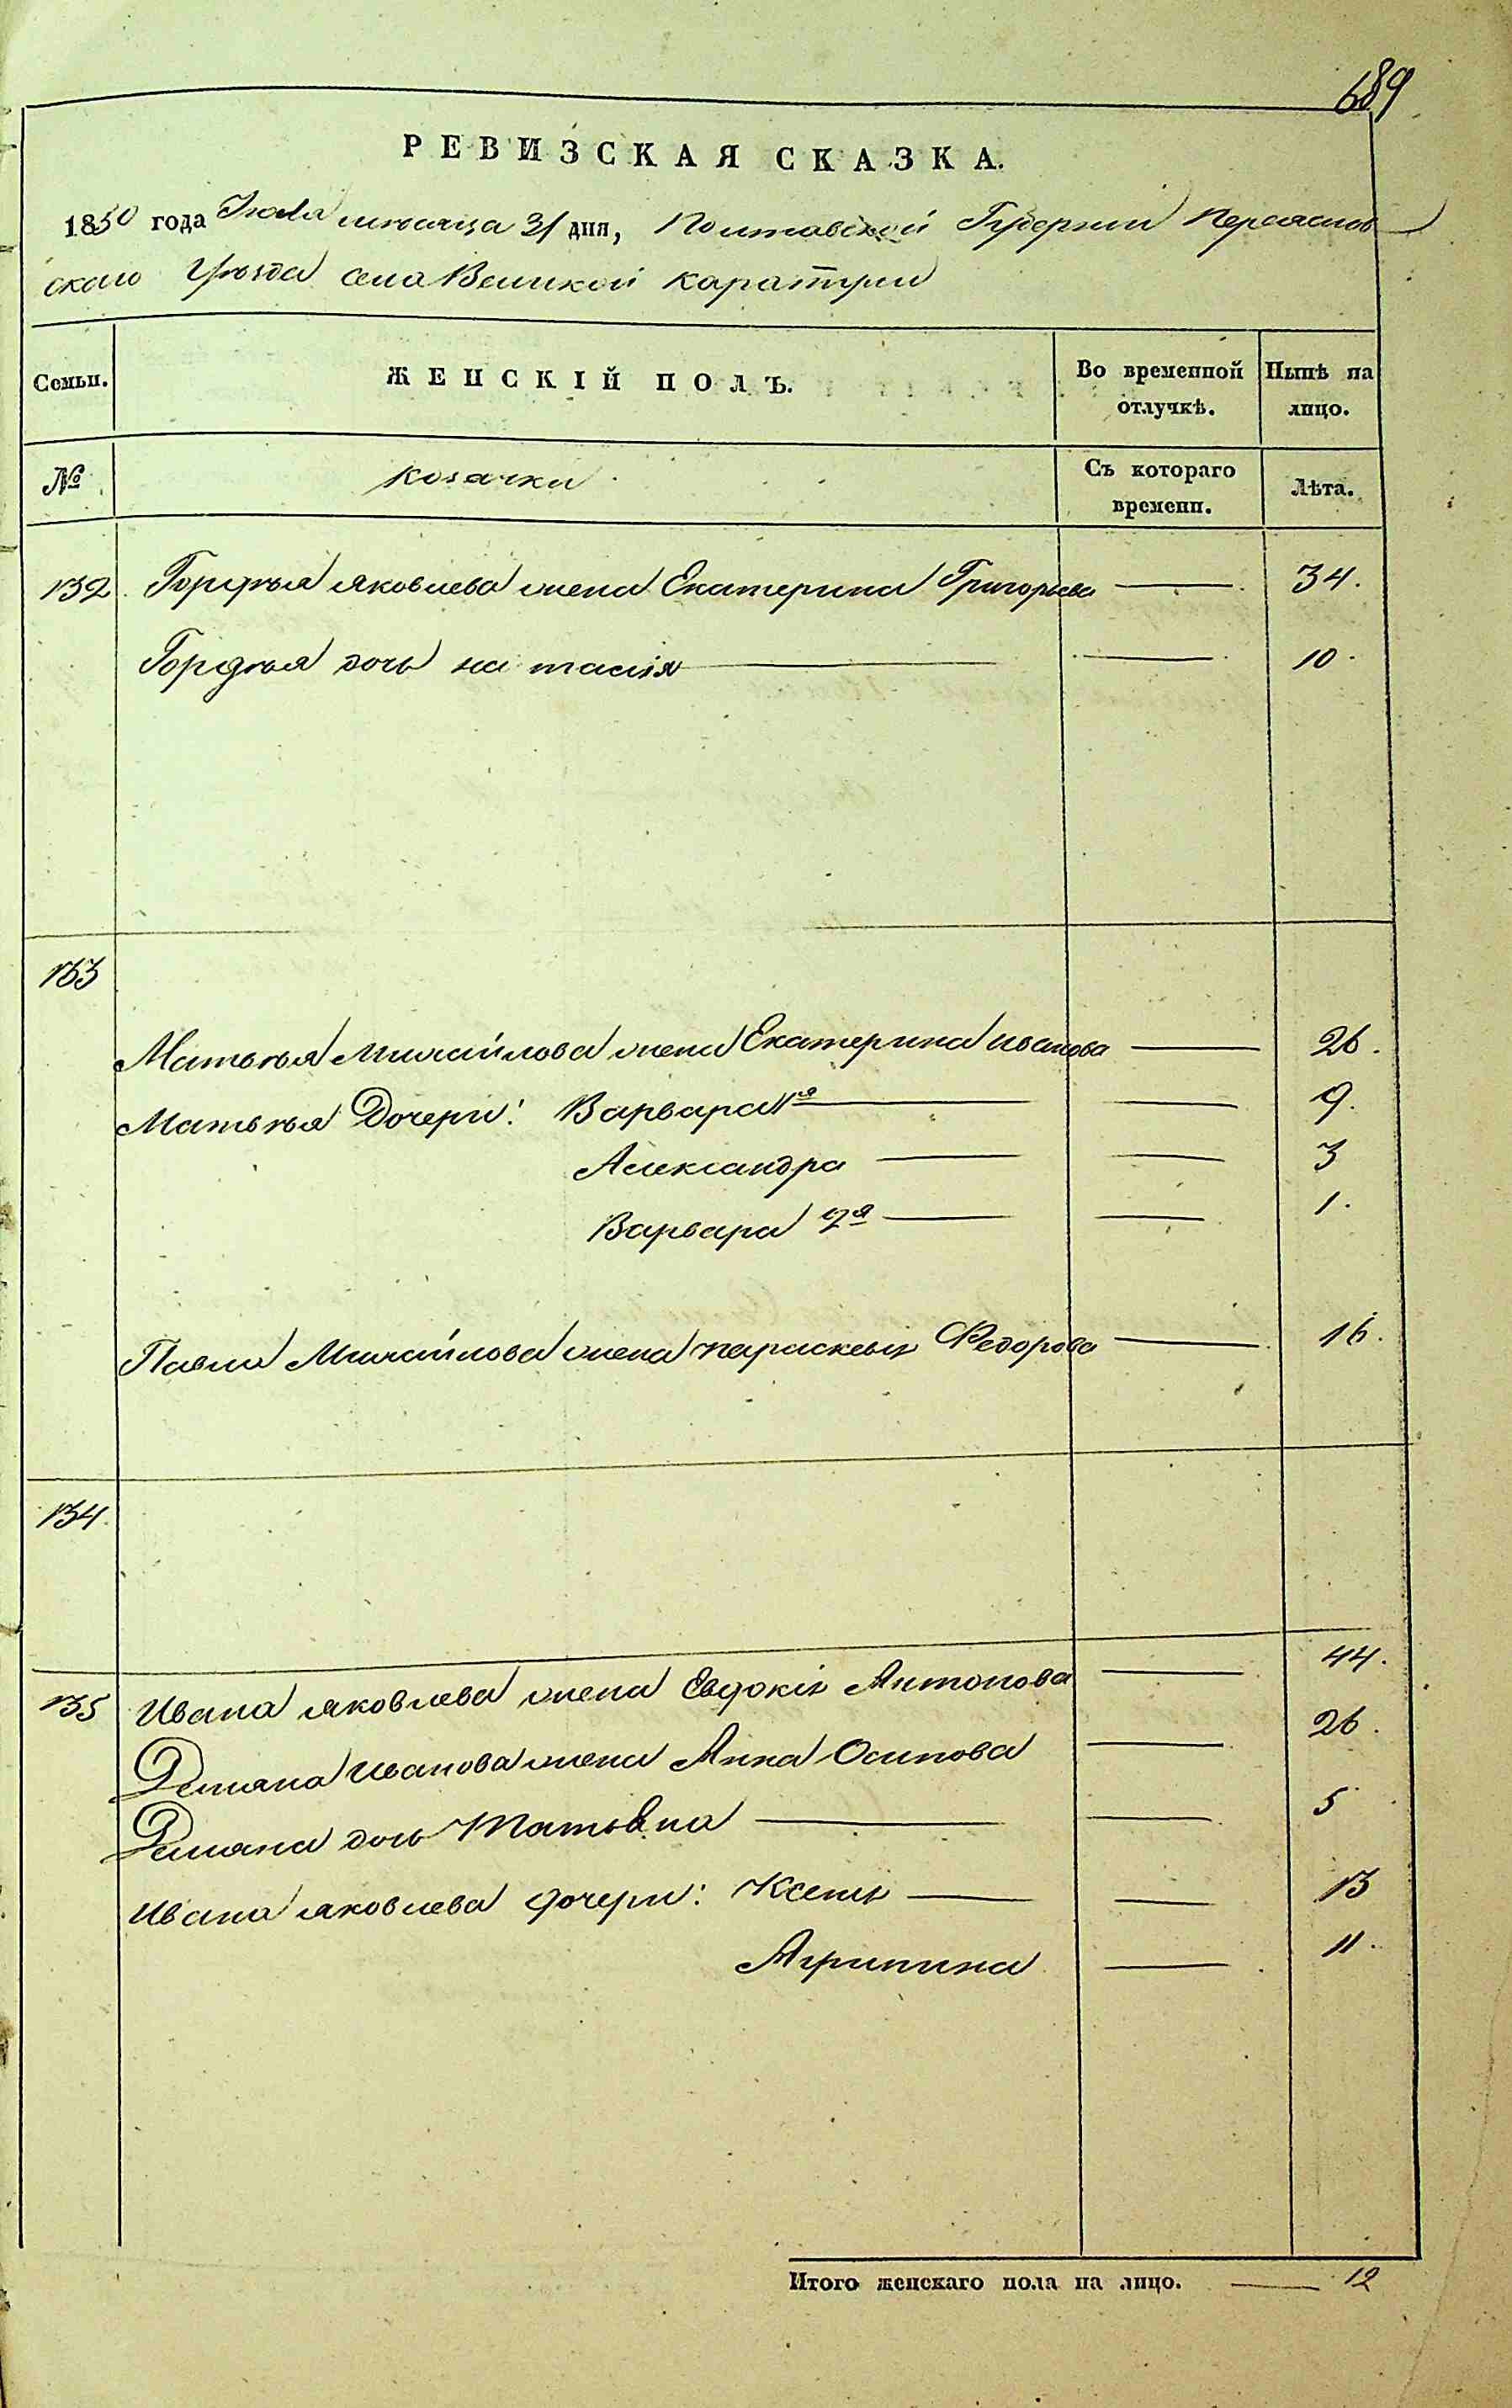 689
РЕВИЗСКАЯ СКАЗКА.
1850 года Июля мѣсяца 31 дня, Полтавской Губернии Переяслов
скаго Уѣзда села Великой Каратули
Семьи. ЖЕНСКІЙ ПОЛЪ. Во временной отлучкѣ. Нынѣ на лицо.
№ Козачки Съ котораго времени. Лѣта.
132. Гордѣя Яковлева жена Екатерина Григорьева — 34.
Гордѣя дочь Настасія — — 10.
133
Матвѣя Михайлова жена Екатерина Иванова — 26.
Матвѣя Дочери: Варвара 1я — — 9.
Александра — — 3
Варвара 2я — — 1.
Павла Михайлова жена Параскевія Федорова — 16.
134.
135 Ивана Яковлева жена Евдокія Антонова — 44.
Демяна Иванова жена Анна Осипова — 26.
Демяна дочь Татьяна — — 5
Ивана Яковлева дочери: Ксенія — — 13
Агрипина — 11.
Итого женскаго пола на лицо. — 12